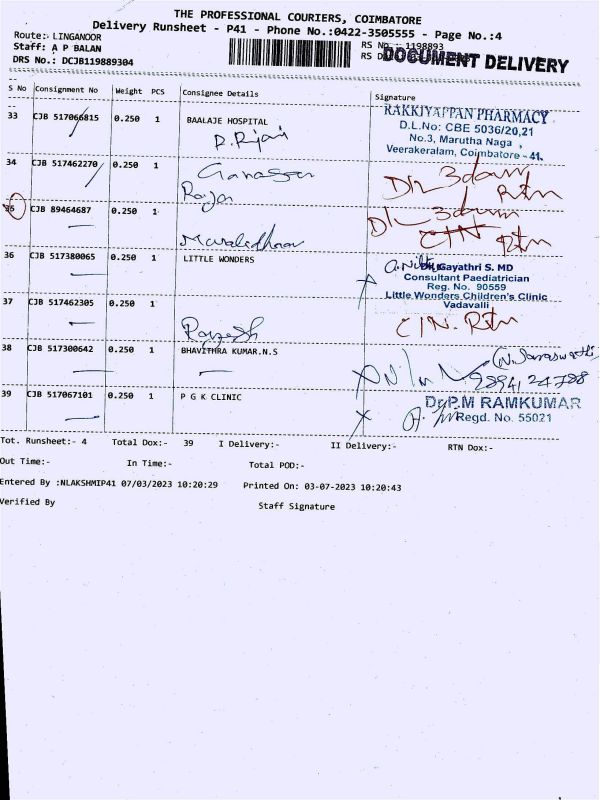 THE PROFESSIONAL COURIERS, COIMBATORE
Delivery Runsheet - P41 - Phone No.:0422-3505555 - Page No.:4
Route: LINGANOOR
RS No.: 1198893
Staff: A P BALAN
DOCUMENT DELIVERY
DRS No.: DCJB119889304
S No Consignment No Weight PCS Consignee Details Signature
33 CJB 517066815 0.250 1 BAALAJE HOSPITAL
RAKKIYAPPAN PHARMACY
D.L.No: CBE 5036/20,21
No.3, Marutha Naga
Veerakeralam, Coimbatore - 41.
34 CJB 517462270 0.250 1
Rajan
DL 3dam
Rtn
35 CJB 89464687 0.250 1
Muralidharan
DL 3dam
CIN Rtn
36 CJB 517380065 0.250 1 LITTLE WONDERS
Dr. Gayathri S. MD
Consultant Paediatrician
Reg. No. 90559
Little Wonders Children's Clinic
Vadavalli
37 CJB 517462305 0.250 1
Rajesh
CIN. Rtn
38 CJB 517300642 0.250 1 BHAVITHRA KUMAR.N.S
(N. Saraswathi)
9894124788
39 CJB 517067101 0.250 1 P G K CLINIC
Dr.P.M RAMKUMAR
Regd. No. 55021
Tot. Runsheet:- 4 Total Dox:- 39 I Delivery:- II Delivery:- RTN Dox:-
Out Time:- In Time:- Total POD:-
Entered By :NLAKSHMIP41 07/03/2023 10:20:29 Printed On: 03-07-2023 10:20:43
Verified By Staff Signature